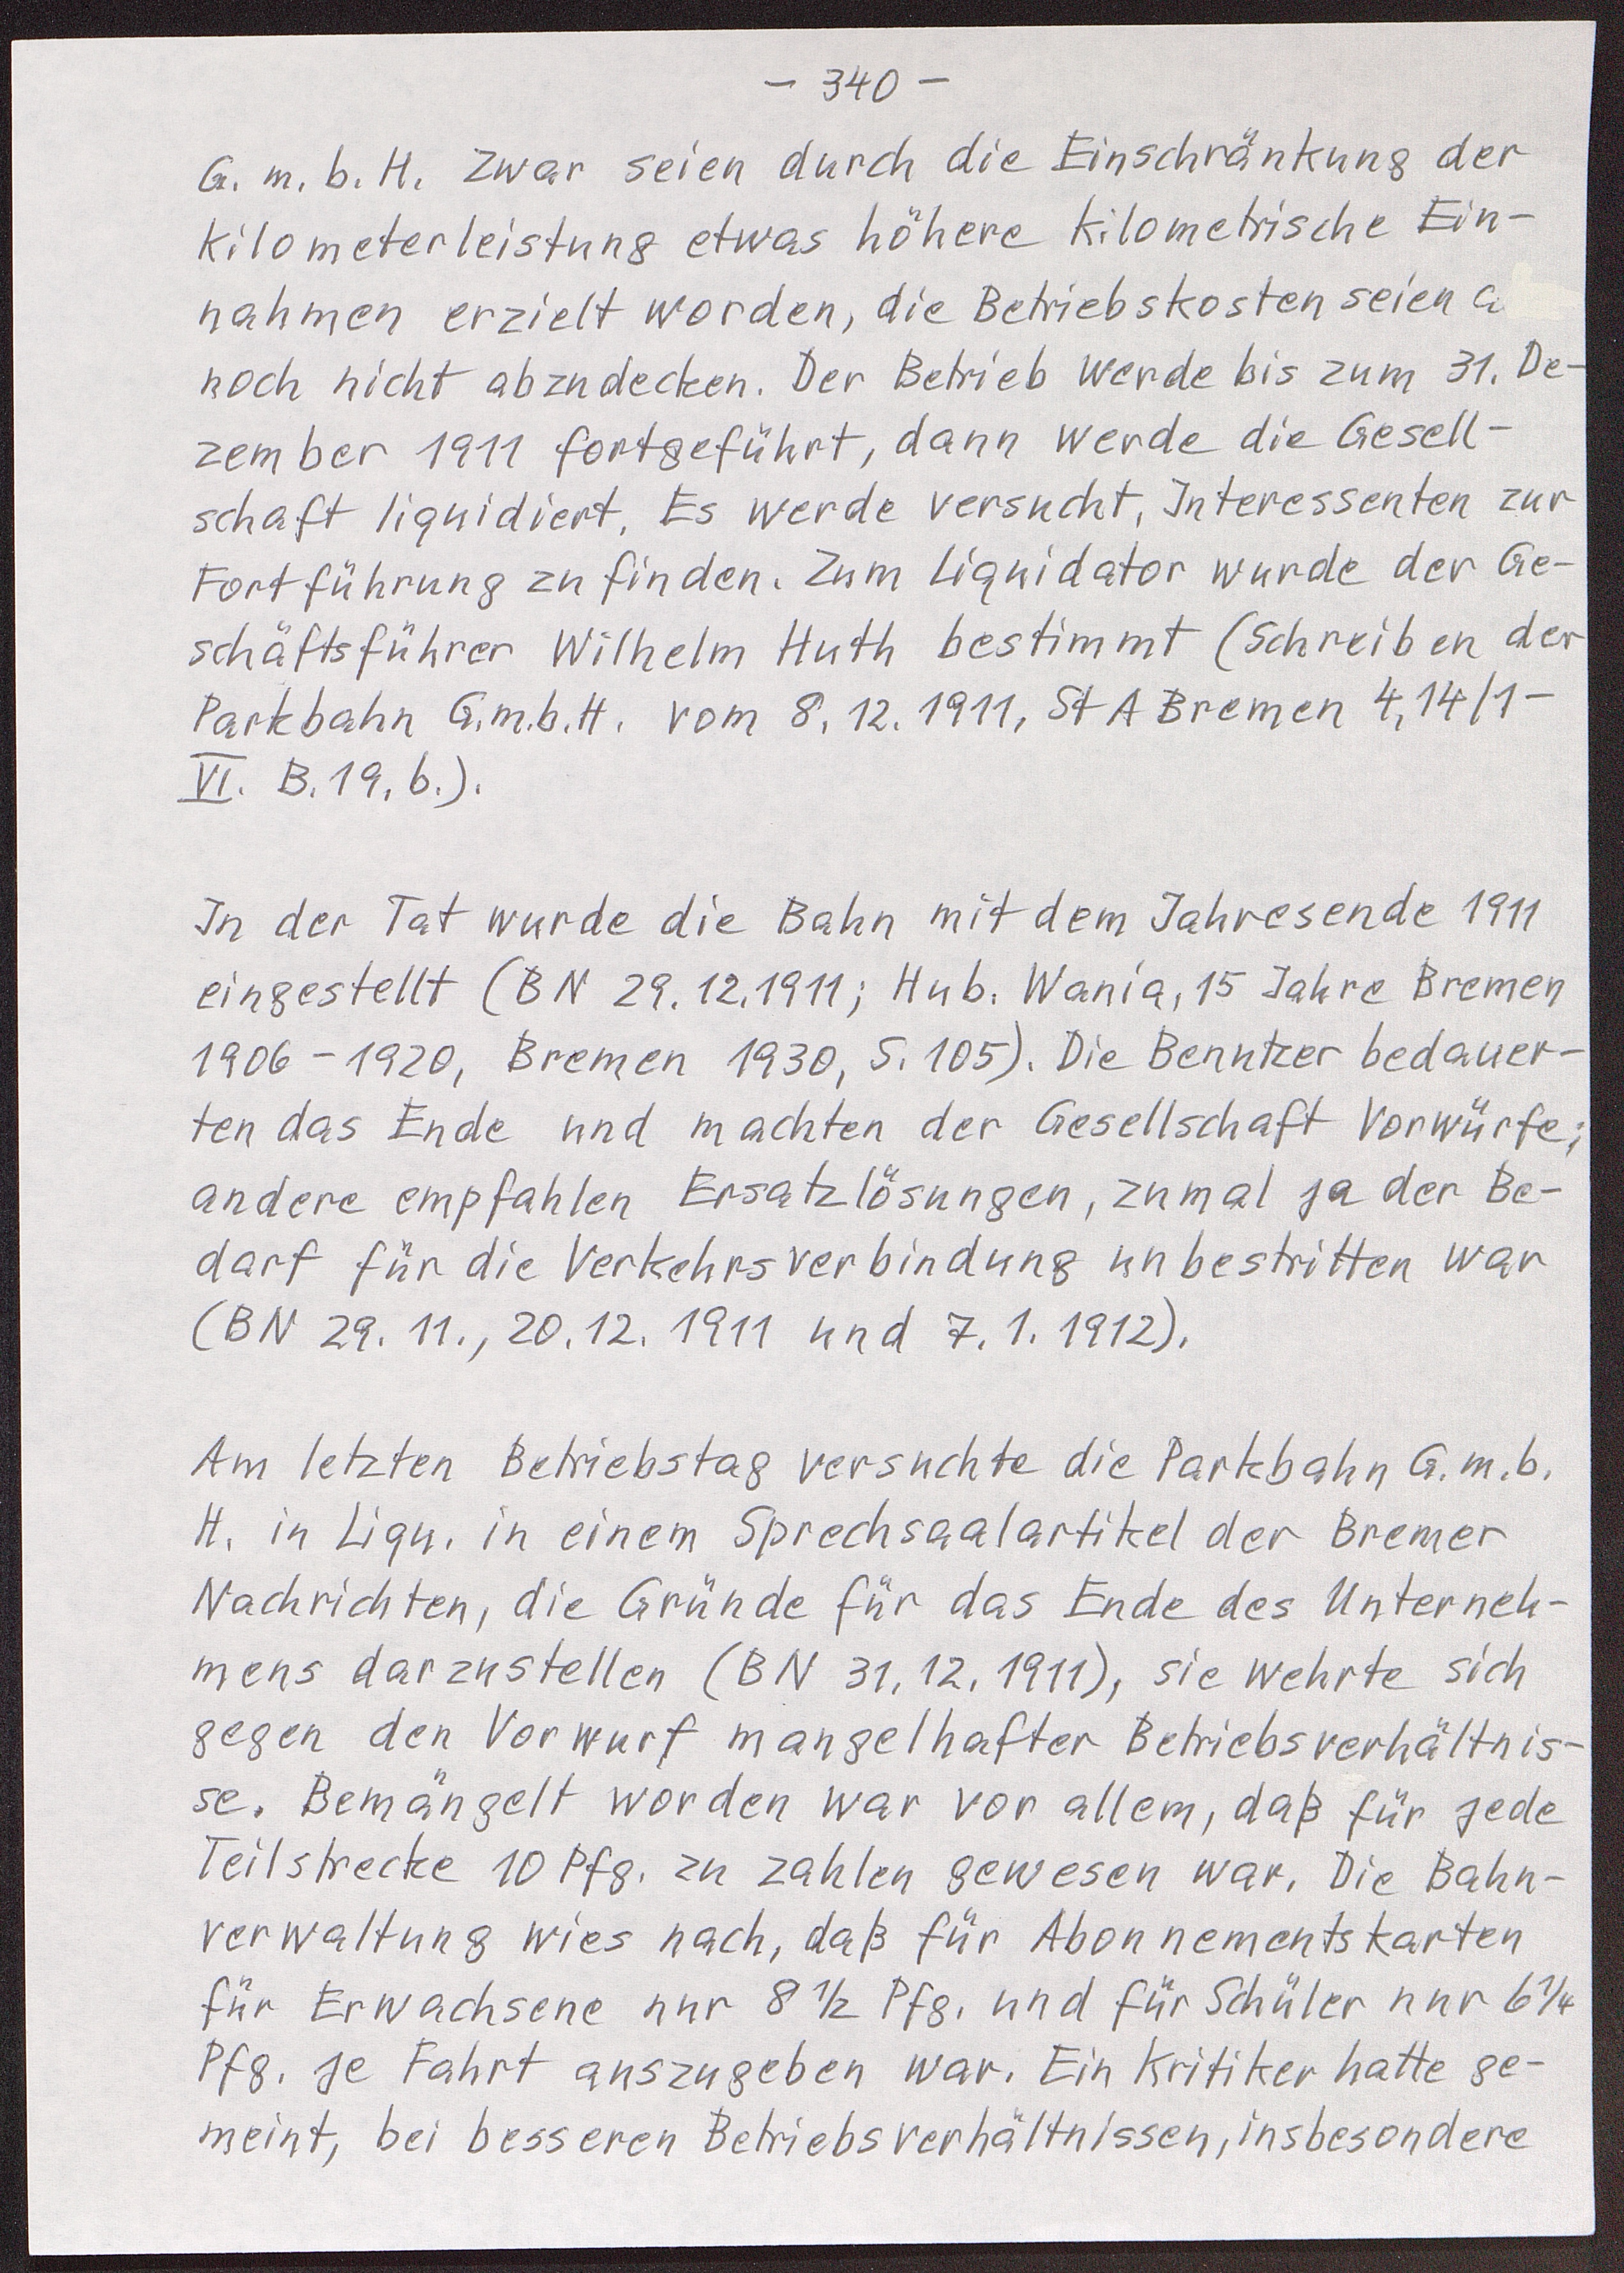 - 340 -
G. m. b. H. Zwar seien durch die Einschränkung der
Kilometerleistung etwas höhere kilometrische Ein-
nahmen erzielt worden, die Betriebskosten seien a
noch nicht abzudecken. Der Betrieb werde bis zum 31. De-
zember 1911 fortgeführt, dann werde die Gesell-
schaft liquidiert. Es werde versucht, Interessenten zur
Fortführung zu finden. Zum Liquidator wurde der Ge-
schäftsführer Wilhelm Huth bestimmt (Schreiben der
Parkbahn G.m.b.H. vom 8. 12. 1911, StA Bremen 4,14/1-
VI. B. 19. b.).
In der Tat wurde die Bahn mit dem Jahresende 1911
eingestellt (BN 29. 12. 1911; Hub. Wania, 15 Jahre Bremen
1906 - 1920, Bremen 1930, S. 105). Die Benutzer bedauer-
ten das Ende und machten der Gesellschaft Vorwürfe;
andere empfahlen Ersatzlösungen, zumal ja der Be-
darf für die Verkehrsverbindung unbestritten war
(BN 29. 11., 20. 12. 1911 und 7. 1. 1912).
Am letzten Betriebstag versuchte die Parkbahn G. m. b.
H. in Liqu. in einem Sprechsaalartikel der Bremer
Nachrichten, die Gründe für das Ende des Unterneh-
mens darzustellen (BN 31. 12. 1911), sie wehrte sich
gegen den Vorwurf mangelhafter Betriebsverhältnis-
se. Bemängelt worden war vor allem, daß für jede
Teilstrecke 10 Pfg. zu zahlen gewesen war. Die Bahn-
verwaltung wies nach, daß für Abonnementskarten
für Erwachsene nur 8 1/2 Pfg. und für Schüler nur 6 1/4
Pfg. je Fahrt auszugeben war. Ein Kritiker hatte ge-
meint, bei besseren Betriebsverhältnissen, insbesondere